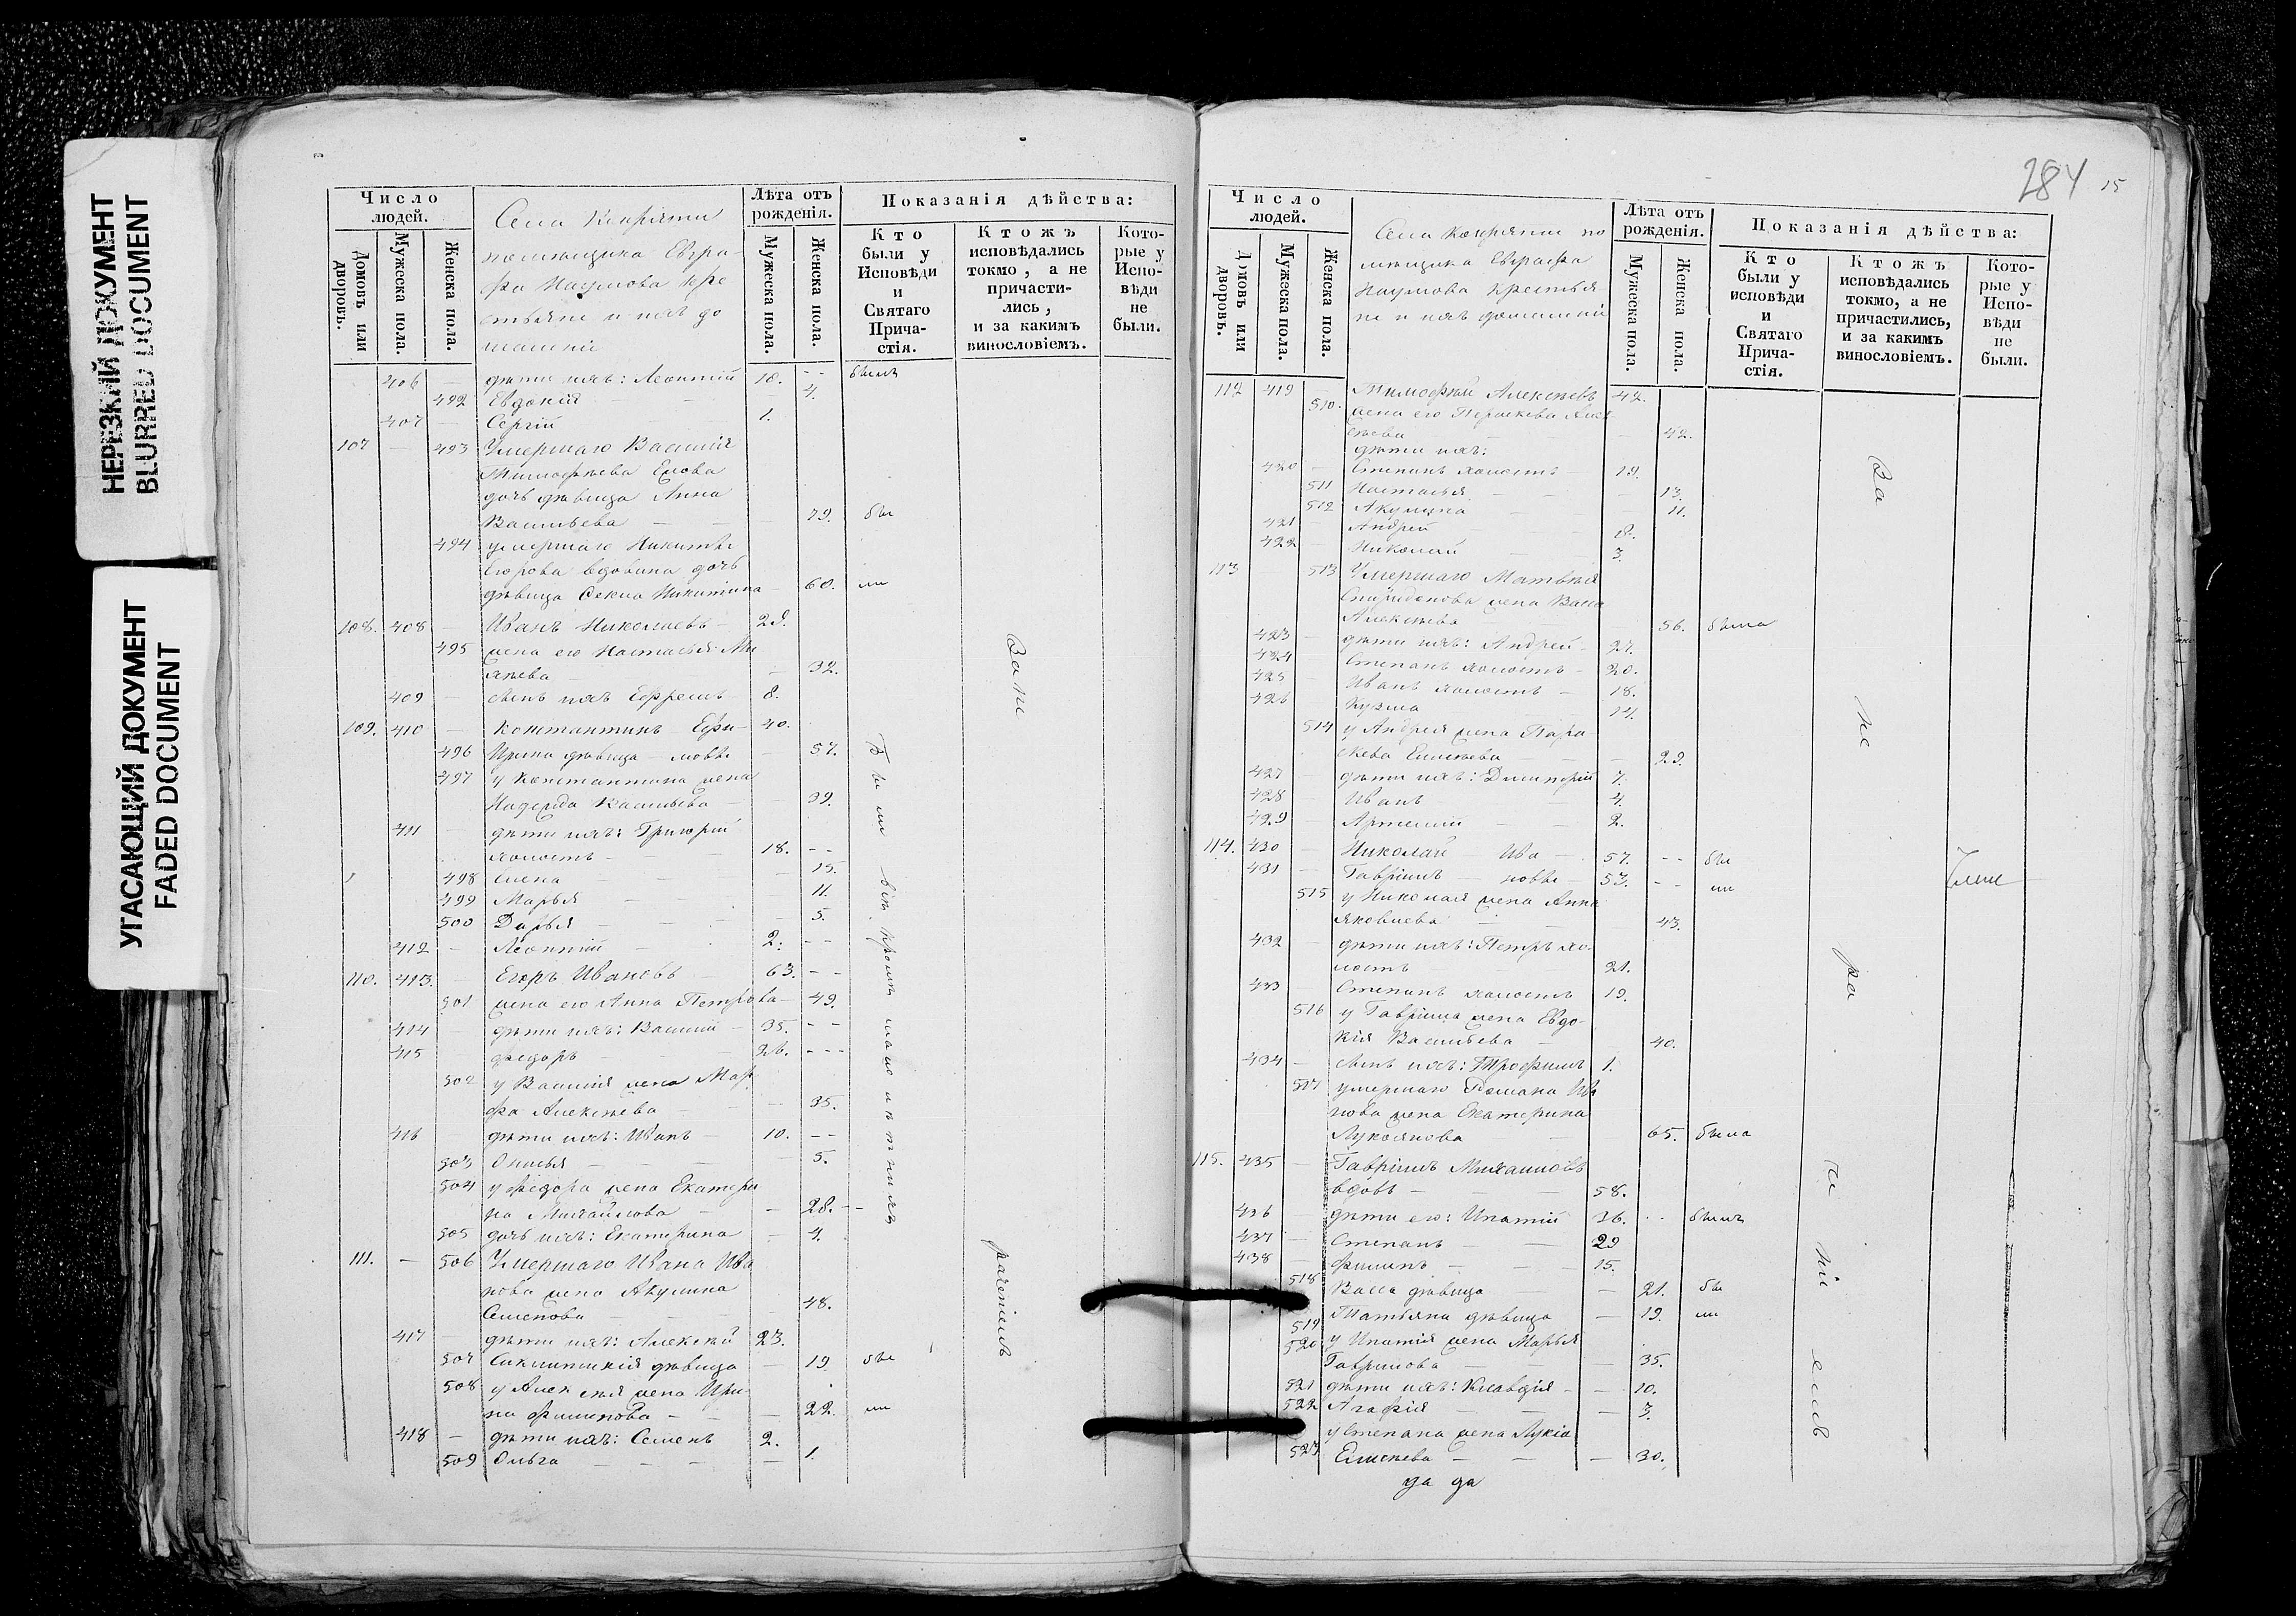 НЕРЕЗКИЙ ДОКУМЕНТ
BLURRED DOCUMENT
УГАСАЮЩИЙ ДОКУМЕНТ
FADED DOCUMENT
Число людей.
Домовъ или дворовъ.
Мужеска пола.
Женска пола.
Села
помѣщика Евгра-
фа Наумова кре
стьяне и ихъ до
машніи
Лѣта отъ рожденія.
Мужеска пола.
Женска пола.
Показанія дѣйства:
Кто были у Исповѣди и Святаго Прича- стія.
Ктожъ исповѣдались токмо, а не причасти- лись, и за какимъ винословіемъ.
Кото- рые у Испо- вѣди не были.
406 — дѣти ихъ: Леонтій 10. -- былъ
492 Евдокія — — — 4.
407 — Сергій 1.
107 — 493 Умершаго Василія
Тимофѣева
дочь дѣвица Анна
Васильева — — 79. бы
494 умершаго Никиты
Егорова вдовина дочь
дѣвица Никитина — 60. ли
108. 408 — Иванъ Николаевъ — 29.
495 жена его Настасья
— — 32.
409 — сынъ ихъ Ефремъ 8.
109. 410 — Константинъ Ефи- 40.
496 Ирина дѣвица — мовы — 57.
497 у Константина жена
Надежда Васильева — 39.
411 — дѣти ихъ: Григорій
холостъ — — — 18. --
498 Елена — 15.
499 Марья — — 11.
500 Дарья — — — 5.
412 — Леонтій — 2. --
110. 413. Егоръ Ивановъ — 63. --
501 жена его Анна Петрова — 49.
414 — дѣти ихъ: Василій — 35. --
415 Федоръ — — — 26. ---
502 у Василія жена Мар
фа Алексѣева — — 35.
416 дѣти ихъ: Иванъ — 10. --
503 — — — 5.
504 у Федора жена Екатери
на Михайлова — — 28. --
505 дочь ихъ: Екатерина — 4.
111. — 506 Умершаго Ивана Ива
нова жена Акулина
Семенова — 48.
417 — дѣти ихъ: Алексѣй 23.
507 дѣвица — 19 бы
508 у Алексѣя жена Ири-
на — — — 22. ли
418 — дѣти ихъ: Семенъ 2.
509 Ольга — — — — 1.
Были всѣ, кромѣ малолѣтнихъ
За не
раченіемъ
284
15
Число людей.
Домовъ или дворовъ.
Мужеска пола.
Женска пола.
Села по
мѣщика Евграфа
Наумова крестья
не и ихъ домашніи
Лѣта отъ рожденія.
Мужеска пола.
Женска пола.
Показанія дѣйства:
Кто были у исповѣди и Святаго Прича- стія.
Ктожъ исповѣдались токмо, а не причастились, и за какимъ винословіемъ.
Кото- рые у Испо- вѣди не были.
112 419 Тимофѣй Алексѣевъ 42.
510. жена его Параскева Алек
сѣева — — 42.
дѣти ихъ:
420 — Степанъ холостъ — 19.
511 Настасья — — — 13.
512 Акулина — — 11.
421 — Андрей — 8.
422 — Николай — — 3.
113 — 513 Умершаго Матвѣя
Спиридонова жена Васса
Алексѣева — — 56. была
423 — дѣти ихъ: Андрей — 27.
424 Степанъ холостъ — 20.
425 Иванъ холостъ — 18.
426 Кузма 14.
514 у Андрея жена Пара
скева Елисѣева — — 29.
427 дѣти ихъ: Димитрій 7.
428 Иванъ — 4.
429 — Артемій — — 2.
114. 430 — Николай Ива — 57. -- бы
431 — Гавріилъ — новы — 53. -- ли
515 у Николая жена Анна
Яковлева — — 43.
432 — дѣти ихъ: Петръ хо-
лостъ — 21.
433 — Степанъ холостъ 19.
516 у Гавріила жена Евдо-
кія Васильева — 40.
434 — сынъ ихъ: Трофимъ 1.
517 умершаго Романа Ива
нова жена Екатерина
Лукоянова — — — 65. была
115. 435 — Гавріилъ Михаиловъ
вдовъ — — — 58.
436 — дѣти его: Ипатій 36. -- былъ
437 — Степанъ — — 29
438 — Филипъ — — — 15.
518 Васса дѣвица — — 21. бы
519 Татьяна дѣвица — 19. ли
520 у Ипатія жена Марья
Гаврилова — — — 35.
521 дѣти ихъ: Клавдія — — 10.
522 Агафія — — — 3.
у Степана жена Лукія
523 Елисѣева — — — 30.
За
не
ра
че
ні
емъ